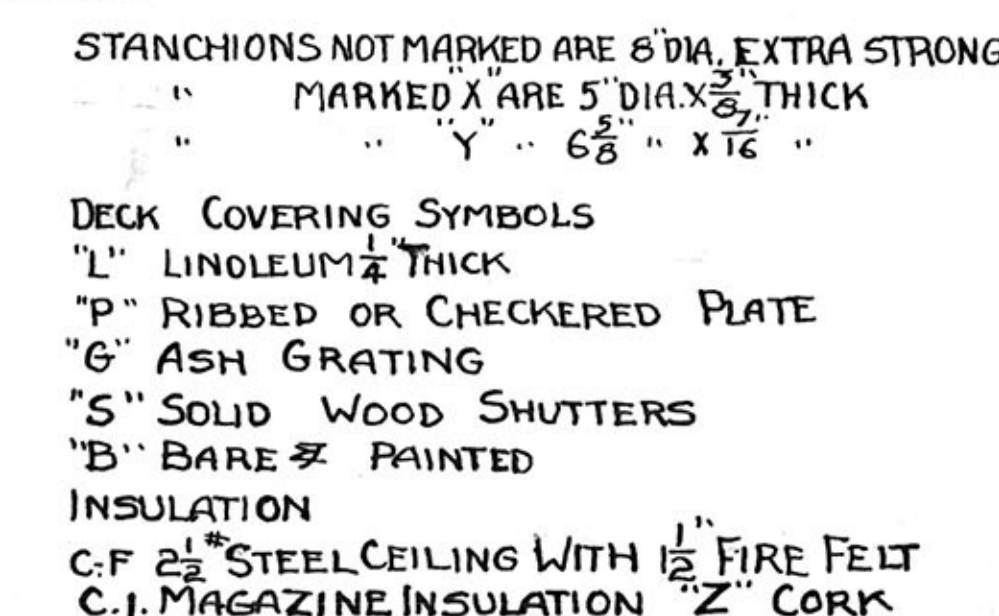 STANCHIONS NOT MARKED ARE 8"DIA. EXTRA STRONG
" MARKED "X" ARE 5" DIA. X 3/8" THICK
" " "Y" " 6 5/8" " X 7/16" "
DECK COVERING SYMBOLS
"L" LINOLEUM 1/4" THICK
"P" RIBBED OR CHECKERED PLATE
"G" ASH GRATING
"S" SOLID WOOD SHUTTERS
"B" BARE & PAINTED
INSULATION
C.F 2 1/2# STEEL CEILING WITH 1 1/2" FIRE FELT
C.I. MAGAZINE INSULATION "Z" CORK